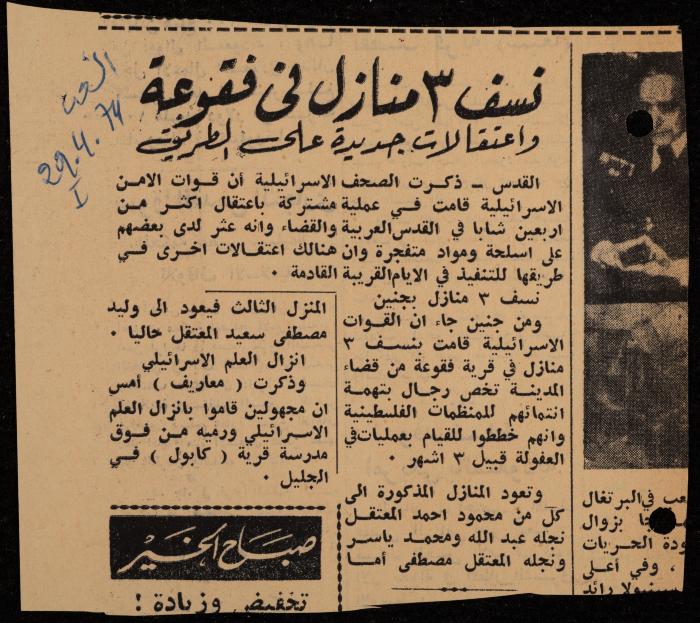 الشعب
29.4.74
I
نسف ٣ منازل في فقوعة
واعتقالات جديدة على الطريق
القدس – ذكرت الصحف الاسرائيلية أن قوات الامن
الاسرائيلية قامت في عملية مشتركة باعتقال اكثر من
اربعين شابا في القدس العربية والقضاء وانه عثر لدى بعضهم
على اسلحة ومواد متفجرة وان هنالك اعتقالات اخرى في
طريقها للتنفيذ في الايام القريبة القادمة ٠
نسف ٣ منازل بجنين
ومن جنين جاء ان القوات
الاسرائيلية قامت بنسف ٣
منازل في قرية فقوعة من قضاء
المدينة تخص رجال بتهمة
انتمائهم للمنظمات الفلسطينية
وانهم خططوا للقيام بعمليات في
العفولة قبيل ٣ اشهر ٠
وتعود المنازل المذكورة الى
كل من محمود احمد المعتقل
نجله عبد الله ومحمد ياسر
ونجله المعتقل مصطفى أما
المنزل الثالث فيعود الى وليد
مصطفى سعيد المعتقل حاليا ٠
انزال العلم الاسرائيلي
وذكرت ( معاريف ) أمس
ان مجهولين قاموا بانزال العلم
الاسرائيلي ورميه من فوق
مدرسة قرية ( كابول ) في
الجليل ٠
صباح الخير
تخفيض وزيادة !
في البرتغال
بزوال
الحريات
، وفي أعلى
رائد